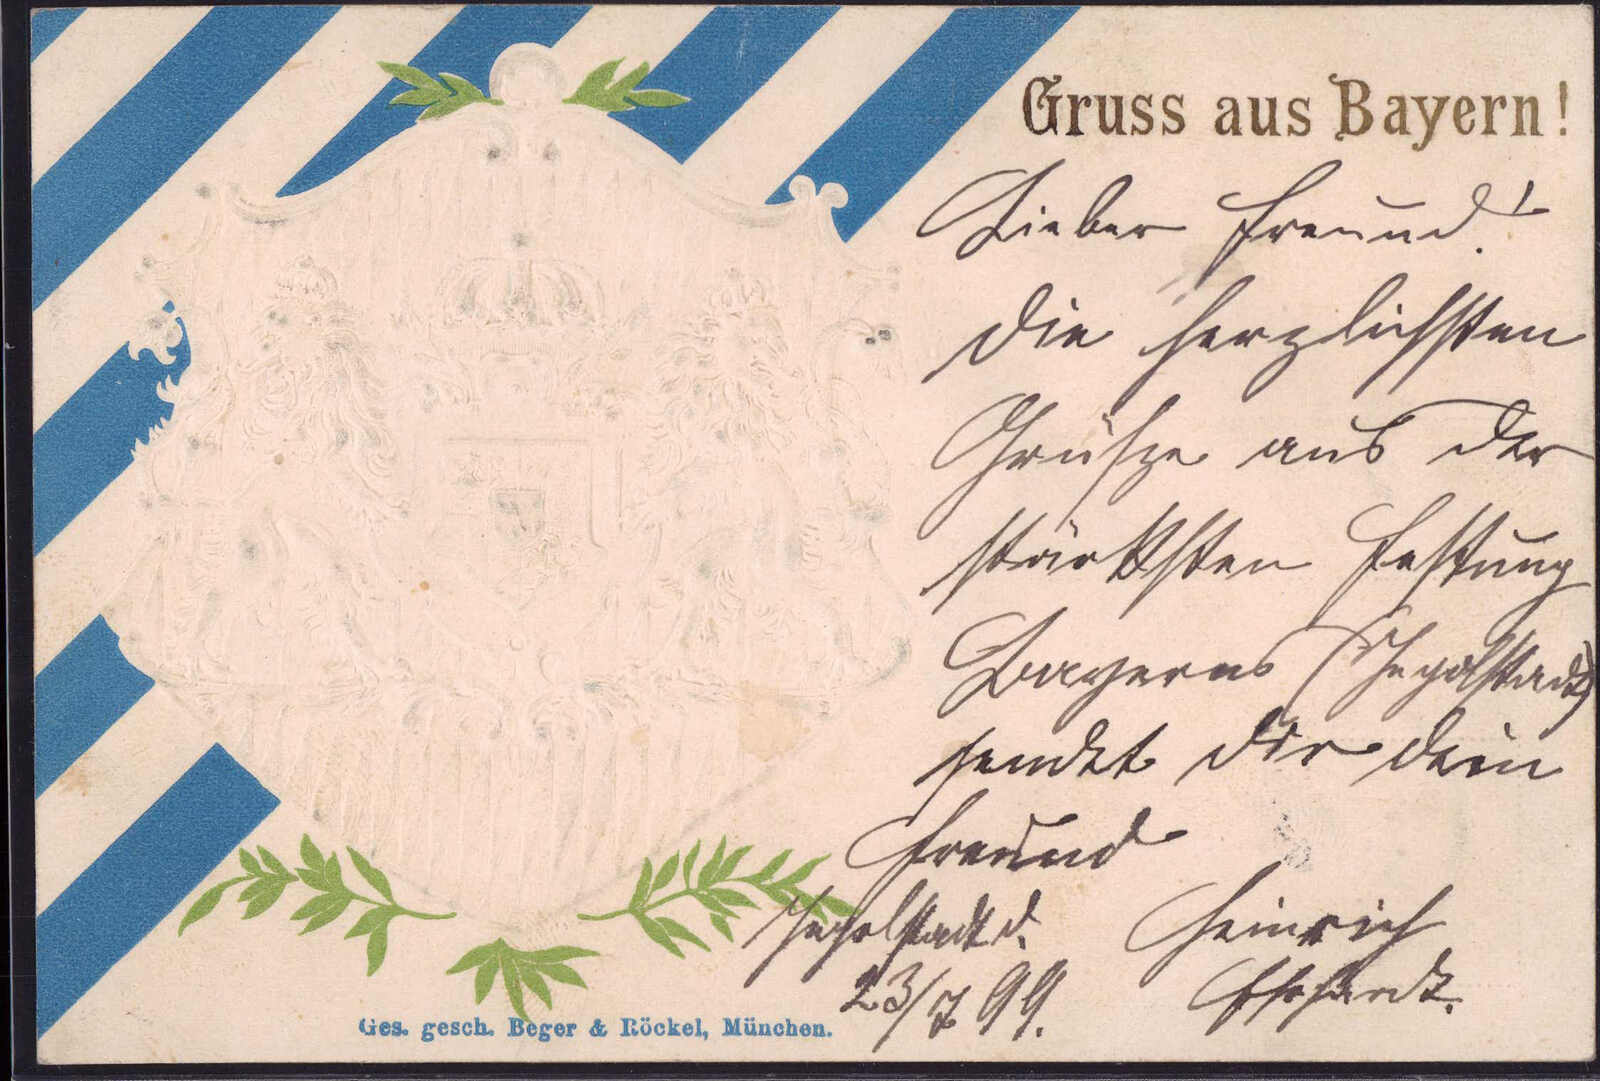 Gruss aus Bayern!
Lieber Freund!
Die herzlichsten
Grüße aus der
stärksten Festung
Bayerns (Ingolstadt)
sendet Dir dein
Freund
Ingolstadt d. Heinrich
23/7 99.
Ges. gesch. Beger & Röckel, München.